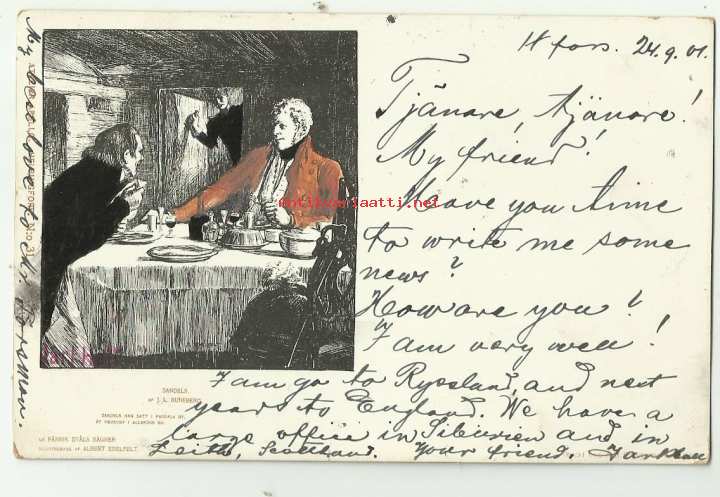 H fors. 24.9.01.
Tjänare, tjänare!
My friend!
Have you time
to write me some
news?
How are you?
I am very well!
I am go to Ryssland, and next
years to England. We have a
large office in Siburien and in
Leith, Scottland. Your friend.
My best love to Mr. Forsman.
SANDELS.
AF J. L. RUNEBERG.
SANDELS HAN SATT I PARDALA BY,
ÅT FRUKOST I ALLSKÖNS RO.
UR FÄNRIK STÅLS SÄGNER
ILLUSTRERADE AF ALBERT EDELFELT.
antikvariaatti.net